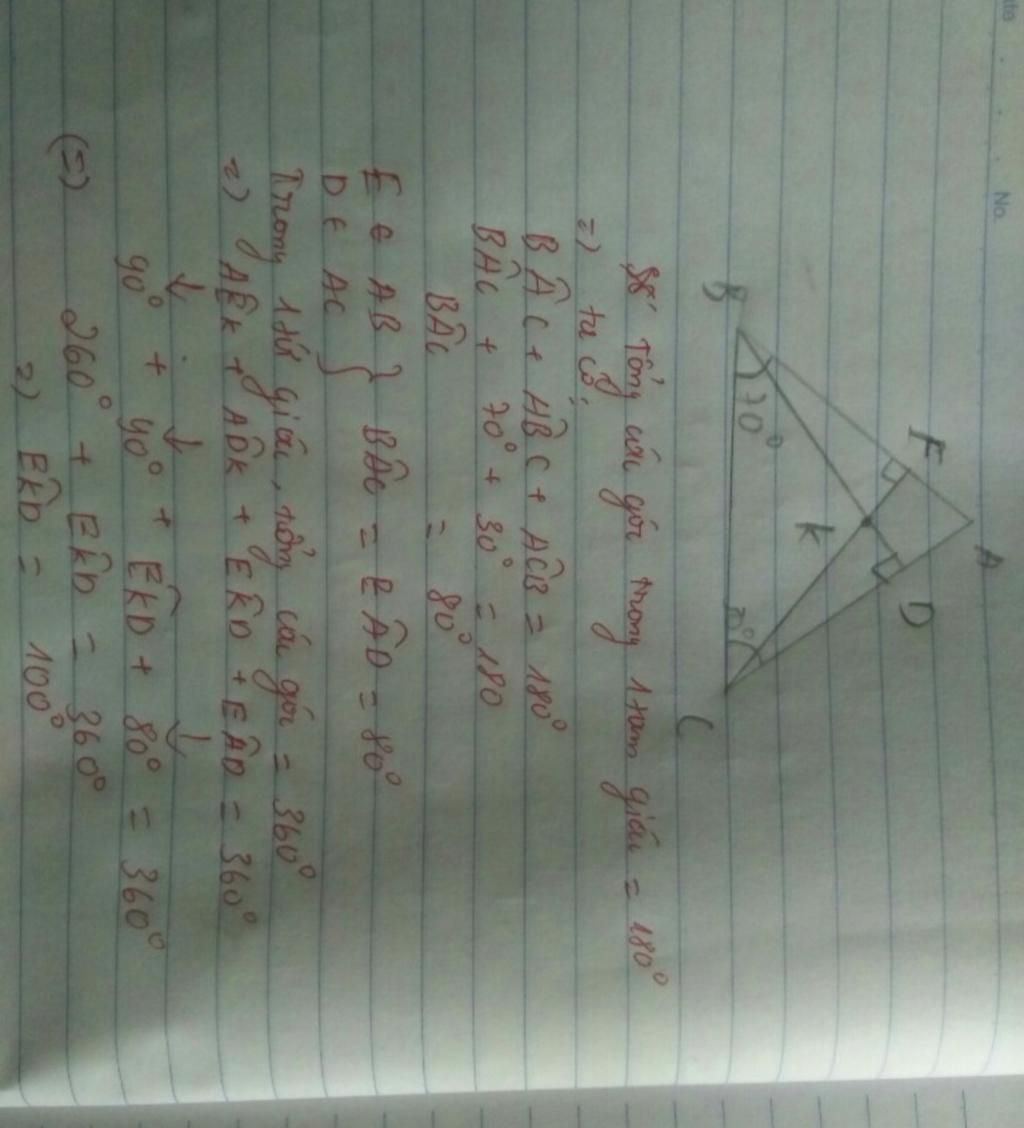 No.
A
E
D
K
B
70°
C
Tổng các góc trong 1 tam giác = 180°
=) ta có:
BÂC + AB̂C + AĈB = 180°
BÂC + 70° + 30° = 180
BÂC = 80°
E ∈ AB } BÂC = EÂD = 80°
D ∈ AC
Trong 1 tứ giác, tổng các góc = 360°
=) AÊK + AD̂K + EK̂D + EÂD = 360°
↓ ↓ ↓
90° + 90° + EK̂D + 80° = 360°
(=) 260° + EK̂D = 360°
=) EK̂D = 100°